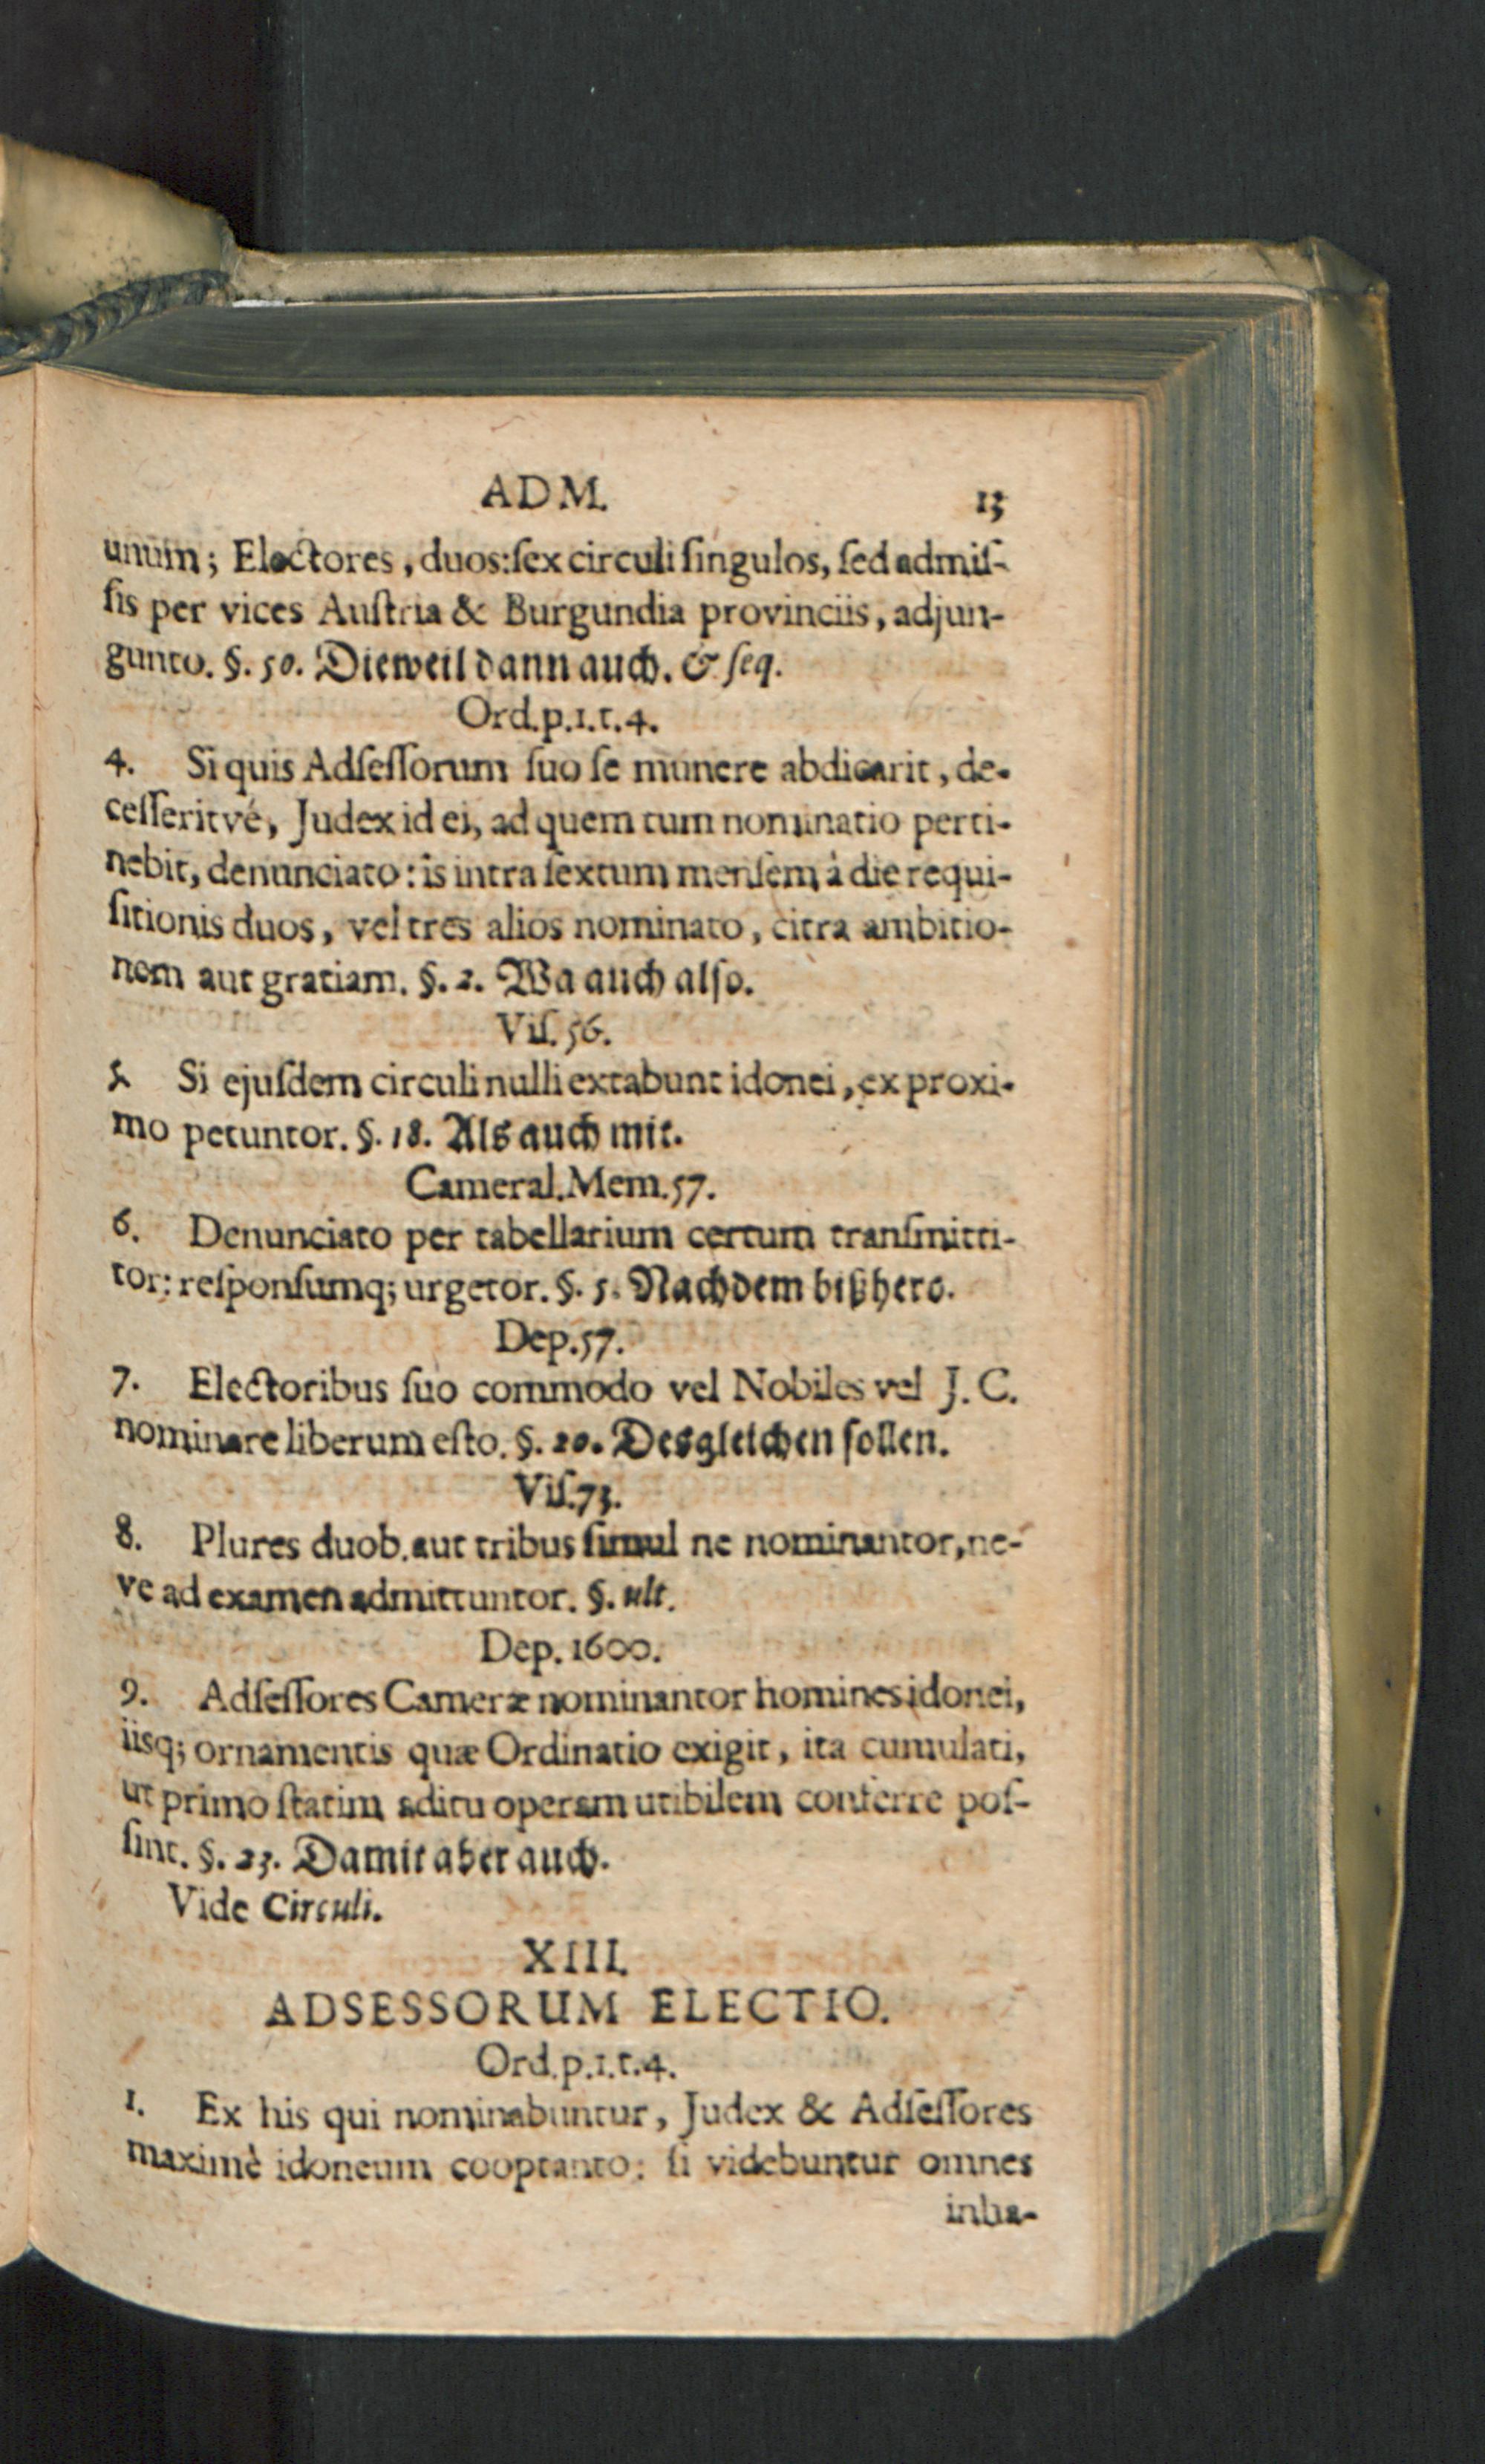 ADM. 13
unum; Electores, duos: ſex circuli ſingulos, ſed admiſ-
ſis per vices Auſtria & Burgundia provinciis, adjun-
gunto. §. 50. Dieweil dann auch. & ſeq.
Ord.p.1.t.4.
4. Si quis Adſeſſorum ſuo ſe munere abdicarit, de-
ceſſeritvé, Judex id ei, ad quem tum nominatio perti-
nebit, denunciato: is intra ſextum menſem à die requi-
ſitionis duos, vel tres alios nominato, citra ambitio-
nem aut gratiam. §. 2. Wa auch alſo.
Viſ. 56.
5. Si ejuſdem circuli nulli extabunt idonei, ex proxi-
mo petuntor. §. 18. Als auch mit.
Cameral. Mem. 57.
6. Denunciato per tabellarium certum tranſmitti-
tor: reſponſumq; urgetor. §. 5. Nachdem bißhero.
Dep. 57.
7. Electoribus ſuo commodo vel Nobiles vel J. C.
nominare liberum eſto. §. 20. Desgleichen ſollen.
Viſ. 73.
8. Plures duob. aut tribus ſimul ne nominantor, ne-
ve ad examen admittuntor. §. ult.
Dep. 1600.
9. Adſeſſores Cameræ nominantor homines idonei,
iisq; ornamentis quæ Ordinatio exigit, ita cumulati,
ut primo ſtatim aditu operam utibilem conferre poſ-
ſint. §. 23. Damit aber auch.
Vide Circuli.
XIII.
ADSESSORUM ELECTIO.
Ord.p.1.t.4.
1. Ex his qui nominabuntur, Judex & Adſeſſores
maximè idoneum cooptanto: ſi videbuntur omnes
inha-